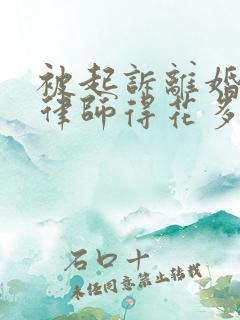 被起訴離婚
律師得花多
石口十
未任同意禁止转载